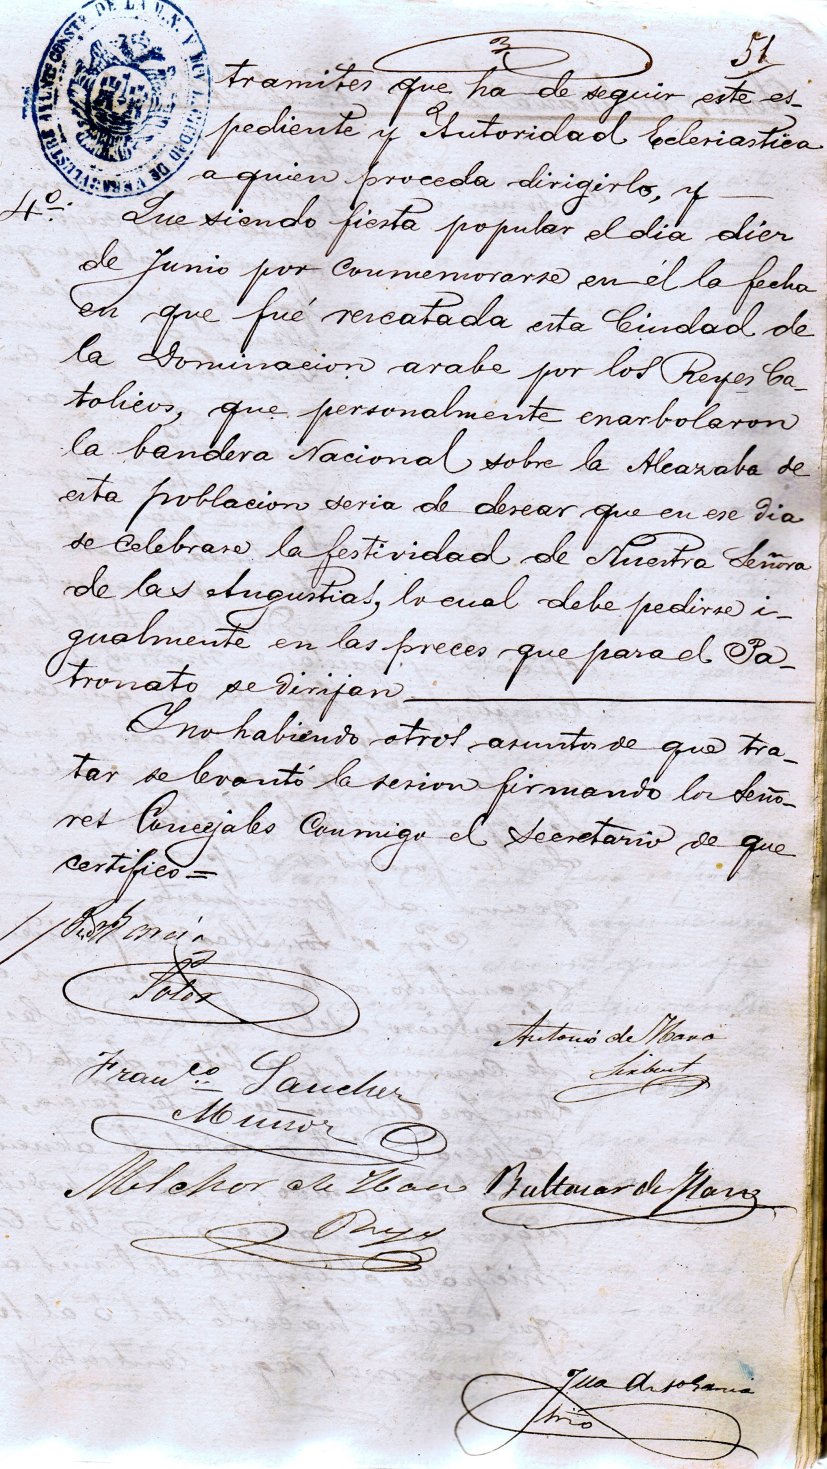 3
51
tramites que ha de seguir este es-
pediente y Autoridad Eclesiastica
a quien proceda dirigirlo, y
4º: Que siendo fiesta popular el dia diez
de Junio por conmemorarse en él la fecha
en que fué rescatada esta Ciudad de
la Dominacion arabe por los Reyes Ca-
tolicos, que personalmente enarbolaron
la bandera Nacional sobre la Alcazaba de
esta poblacion seria de desear que en ese dia
se celebrase la festividad de Nuestra Señora
de las Angustias, lo cual debe pedirse i-
gualmente en las preces que para el Pa-
tronato se dirijan
Y no habiendo otros asuntos de que tra-
tar se levantó la sesion firmando los Seño-
res Concejales conmigo el Secretario de que
certifico=
Garcia
Antonio de Haro
Franco Sanchez
Muñoz
Melchor de Haro
Baltasar de Haro
Srio